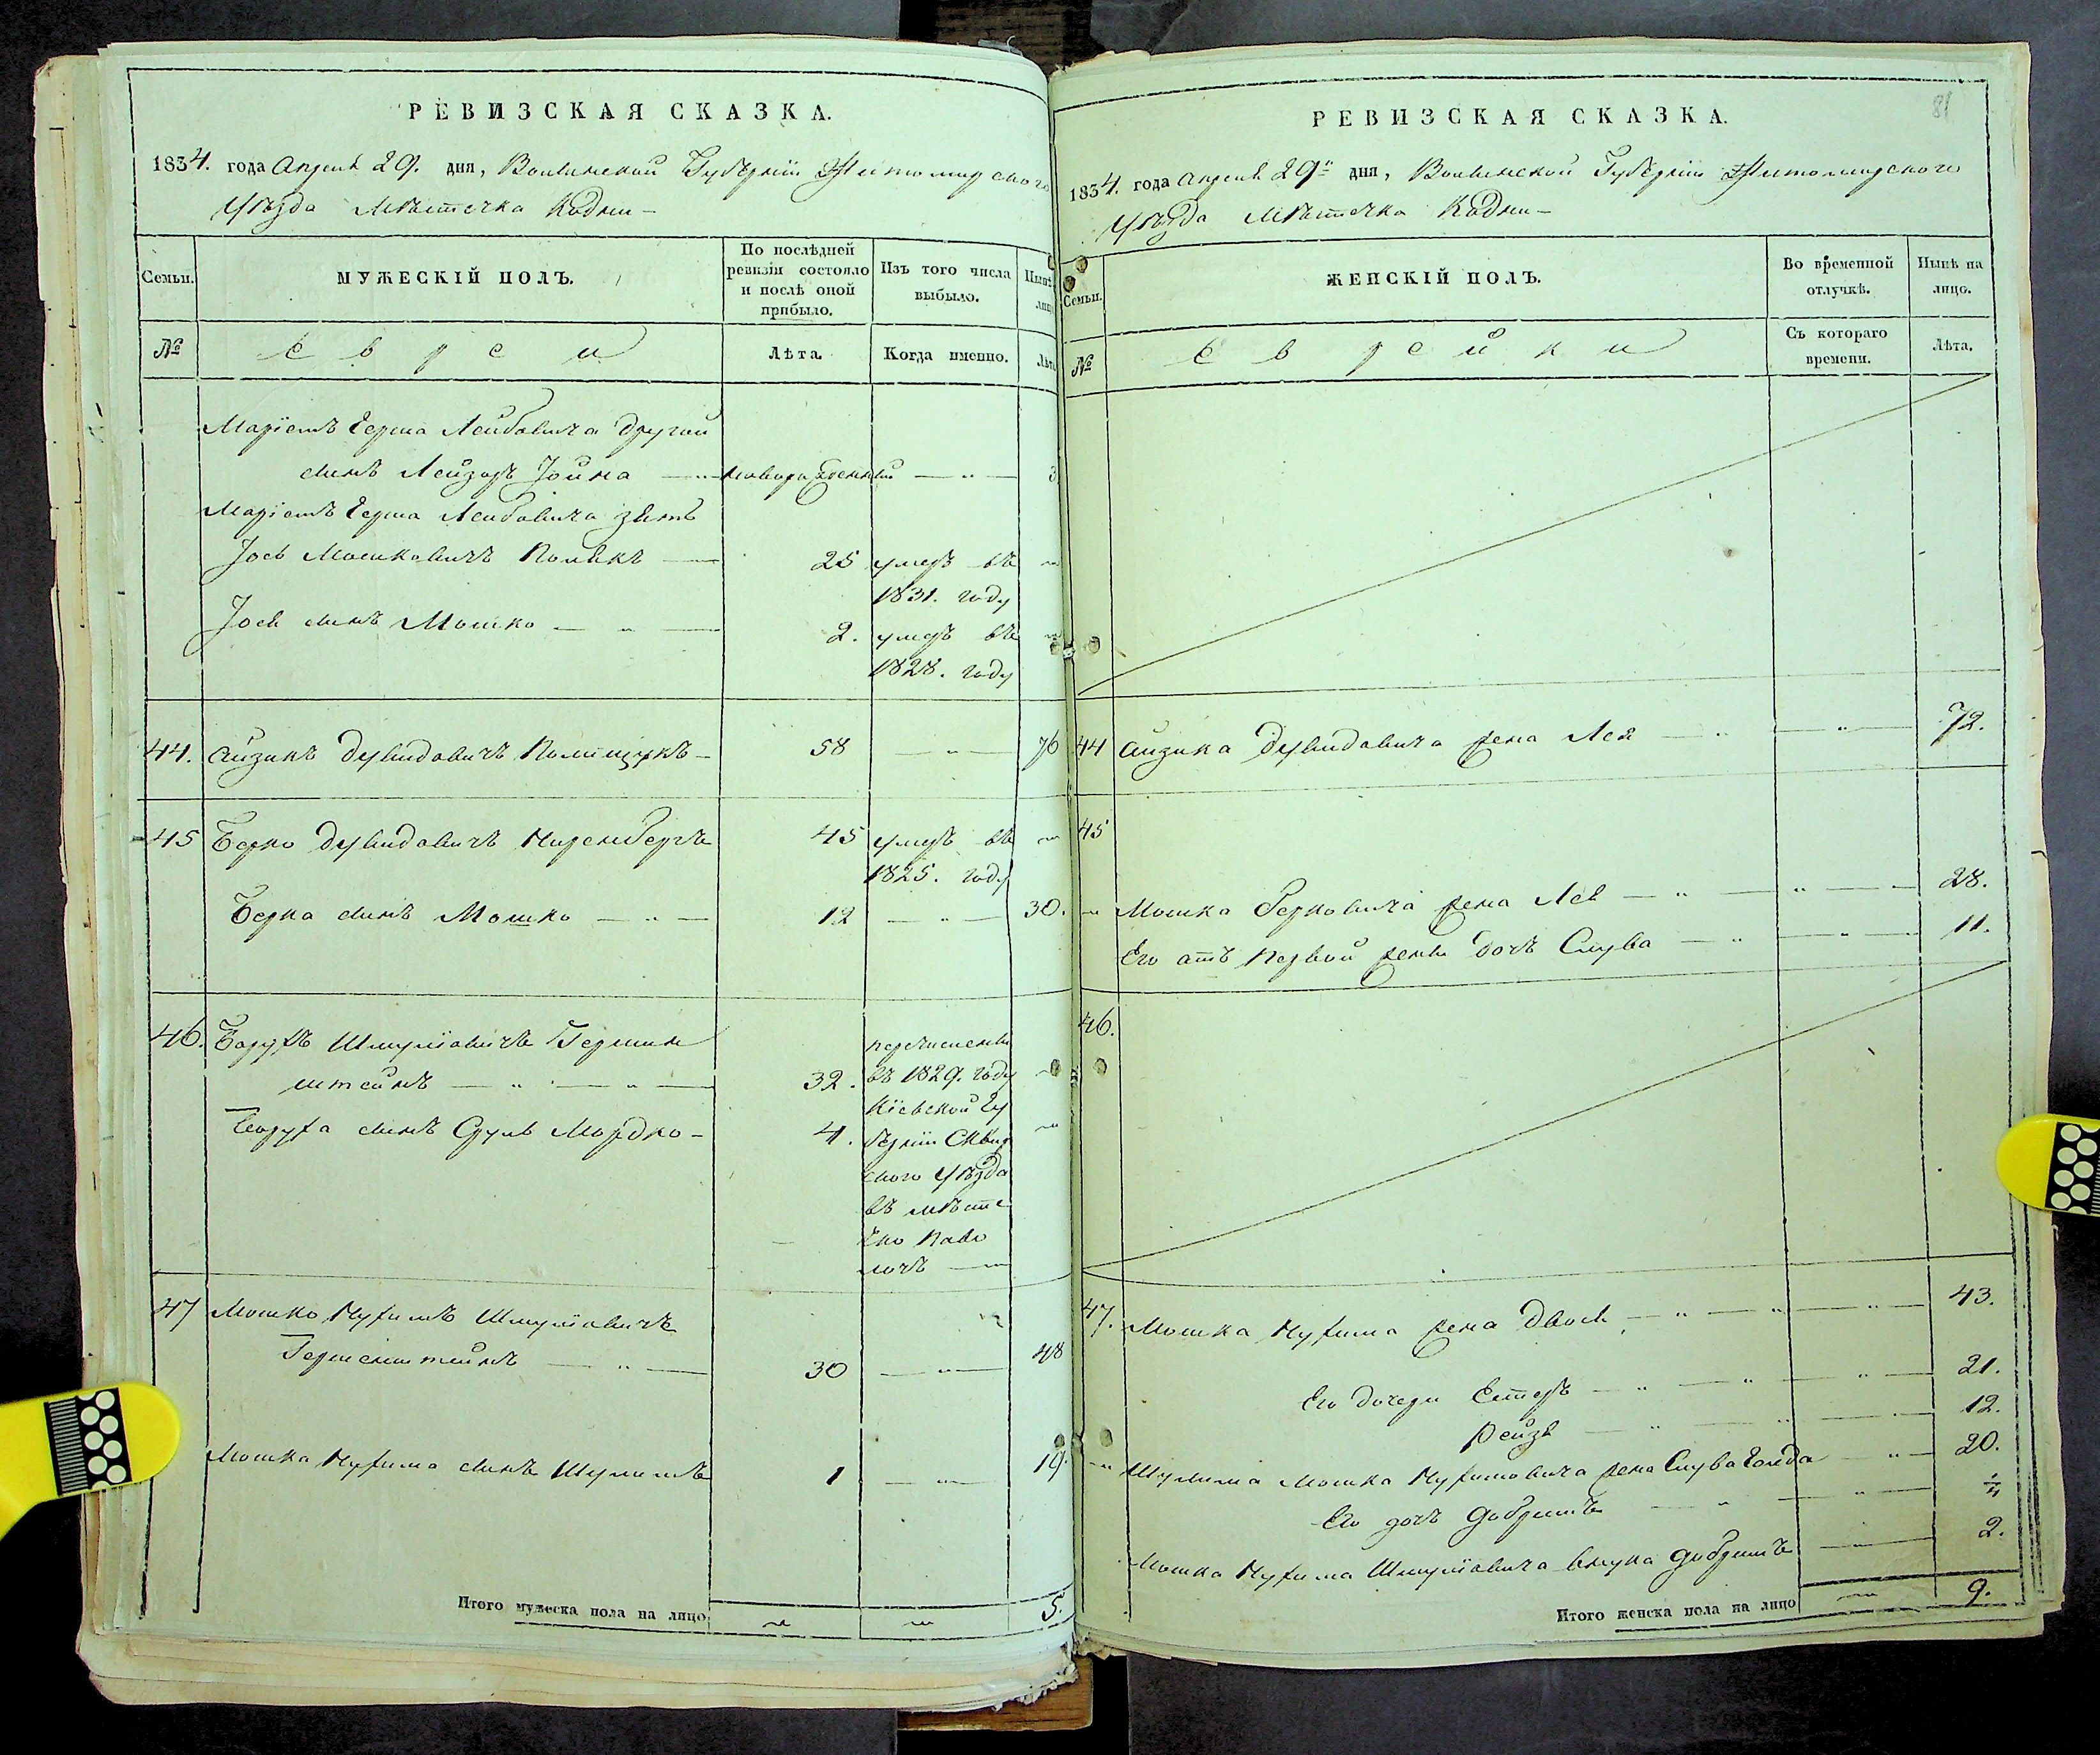 РЕВИЗСКАЯ СКАЗКА.
1834. года Апреля 29. дня, Волынской Губерніи Житомирского
Уѣзда Мѣстечка Кодни
Семьи.
МУЖЕСКІЙ ПОЛЪ.
По послѣдней
ревизіи состояло
и послѣ оной
прибыло.
Изъ того числа
выбыло.
№
Евреи
Лѣта.
Когда именно.
Герша Лейбовича другой
сынъ Лейзоръ Іойна новорожденный 3
Герша Лейбовича зять
Іось Мошковичъ Полякъ 25 умеръ въ
1831. году
Іося сынъ Мошко 2. умеръ въ
1828. году
44. Айзикъ Дувидовичъ Полищукъ 58 76
45 Берко Дувидовичъ Ниренбергъ 45 умеръ въ
1825. году
Берка сынъ Мошко 12 30.
46. Барухъ Шмулiовичъ Гершин
штейнъ 32.
Баруха сынъ Сруль Мордко 4.
перечисленъ
въ 1829. году
Кіевской Гу
берніи Сквир
ского Уѣзда
въ мѣсте
чко Паво
лочь
47 Мошко Нухимъ Шмулiовичъ
Гершенштейнъ 30 48
Мошка Нухима сынъ Шулимъ 1 19.
Итого мужеска пола на лицо 5.
81
РЕВИЗСКАЯ СКАЗКА.
1834. года Апреля 29 дня, Волынской Губерніи Житомирского
Уѣзда Мѣстечка Кодни
Семьи.
ЖЕНСКІЙ ПОЛЪ.
Во временной
отлучкѣ.
Нынѣ на
лицо.
№
Еврейки
Съ котораго
времени.
Лѣта.
44 Айзика Дувидовича жена Лея 72.
45
Мошка Берковича жена Лея 28.
Его отъ первой жены дочь Слува 11.
46.
47. Мошка Нухима жена Двося 43.
Его дочери Естеръ 21.
Рейзя 12.
Шулима Мошка Нухимовича жена Слува Голда 20.
Его дочь Добришъ ¼
Мошка Нухима Шмулiовича внука Добришъ 2.
Итого женска пола на лицо 9.